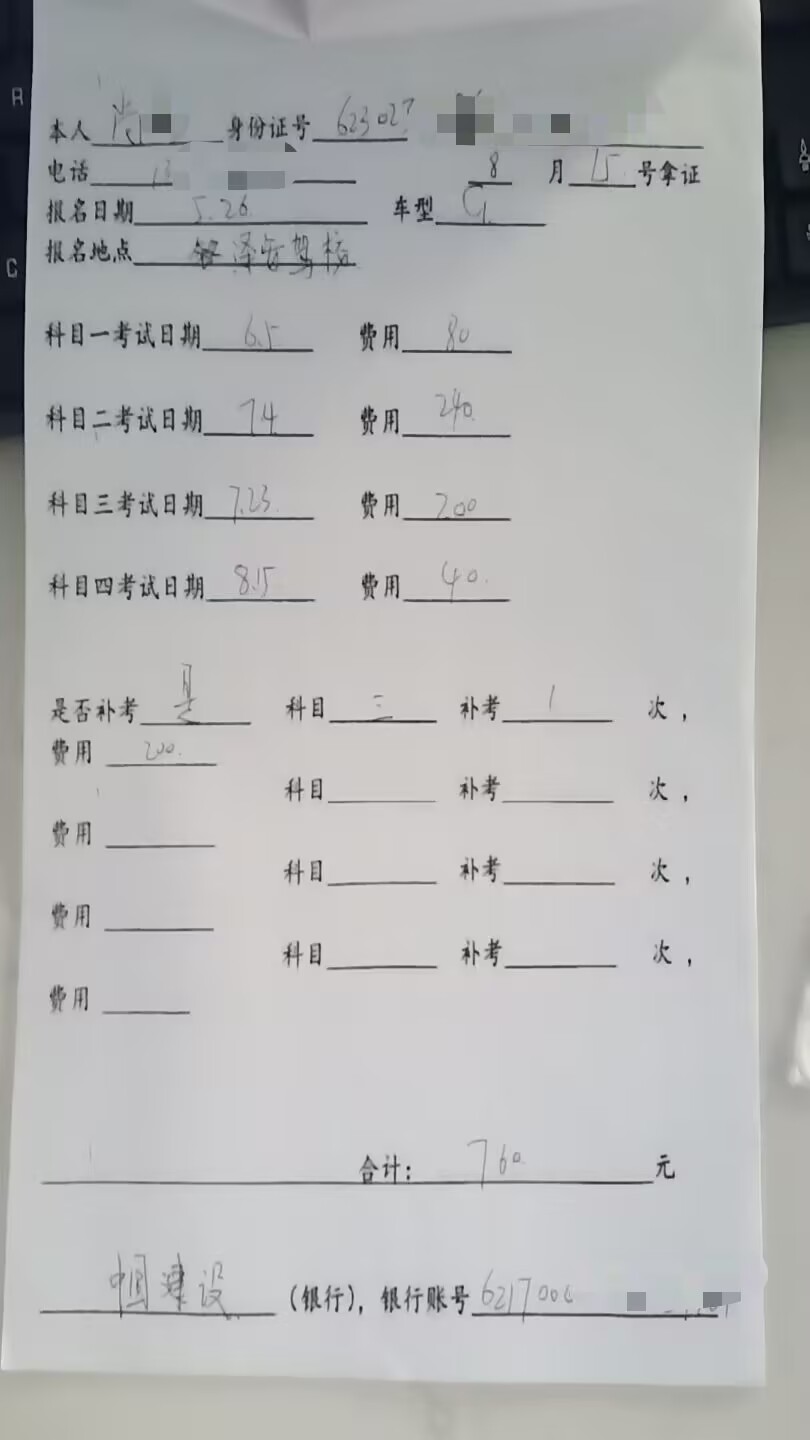 本人 尚 身份证号 623027
电话 13 8 月 15 号拿证
报名日期 5.26 车型 C1
报名地点 泽安驾校
科目一考试日期 6.5 费用 80
科目二考试日期 7.4 费用 240.
科目三考试日期 7.23. 费用 200
科目四考试日期 8.15 费用 40.
是否补考 是 科目 三 补考 1 次，
费用 200.
科目 补考 次，
费用
科目 补考 次，
费用
科目 补考 次，
费用
合计： 760. 元
中国建设 （银行），银行账号 6217000